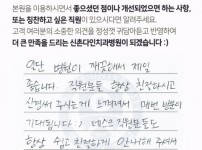 본원을 이용하시면서 좋았던 점이나 개선되었으면 하는 사항,
또는 칭찬하고 싶은 직원이 있으시다면 알려주세요.
고객 여러분의 소중한 의견을 정성껏 귀담아듣고 반영하여
더 큰 만족을 드리는 신촌다인치과병원이 되겠습니다 :)
일단 병원이 깨끗해서 제일
좋습니다 직원분들 항상 친절하시고
신경써 주시는게 느껴져서 매번 방문이
기대됩니다. 데스크 직원분들도
항상 쉽고 친절하게 안내해 주셔서